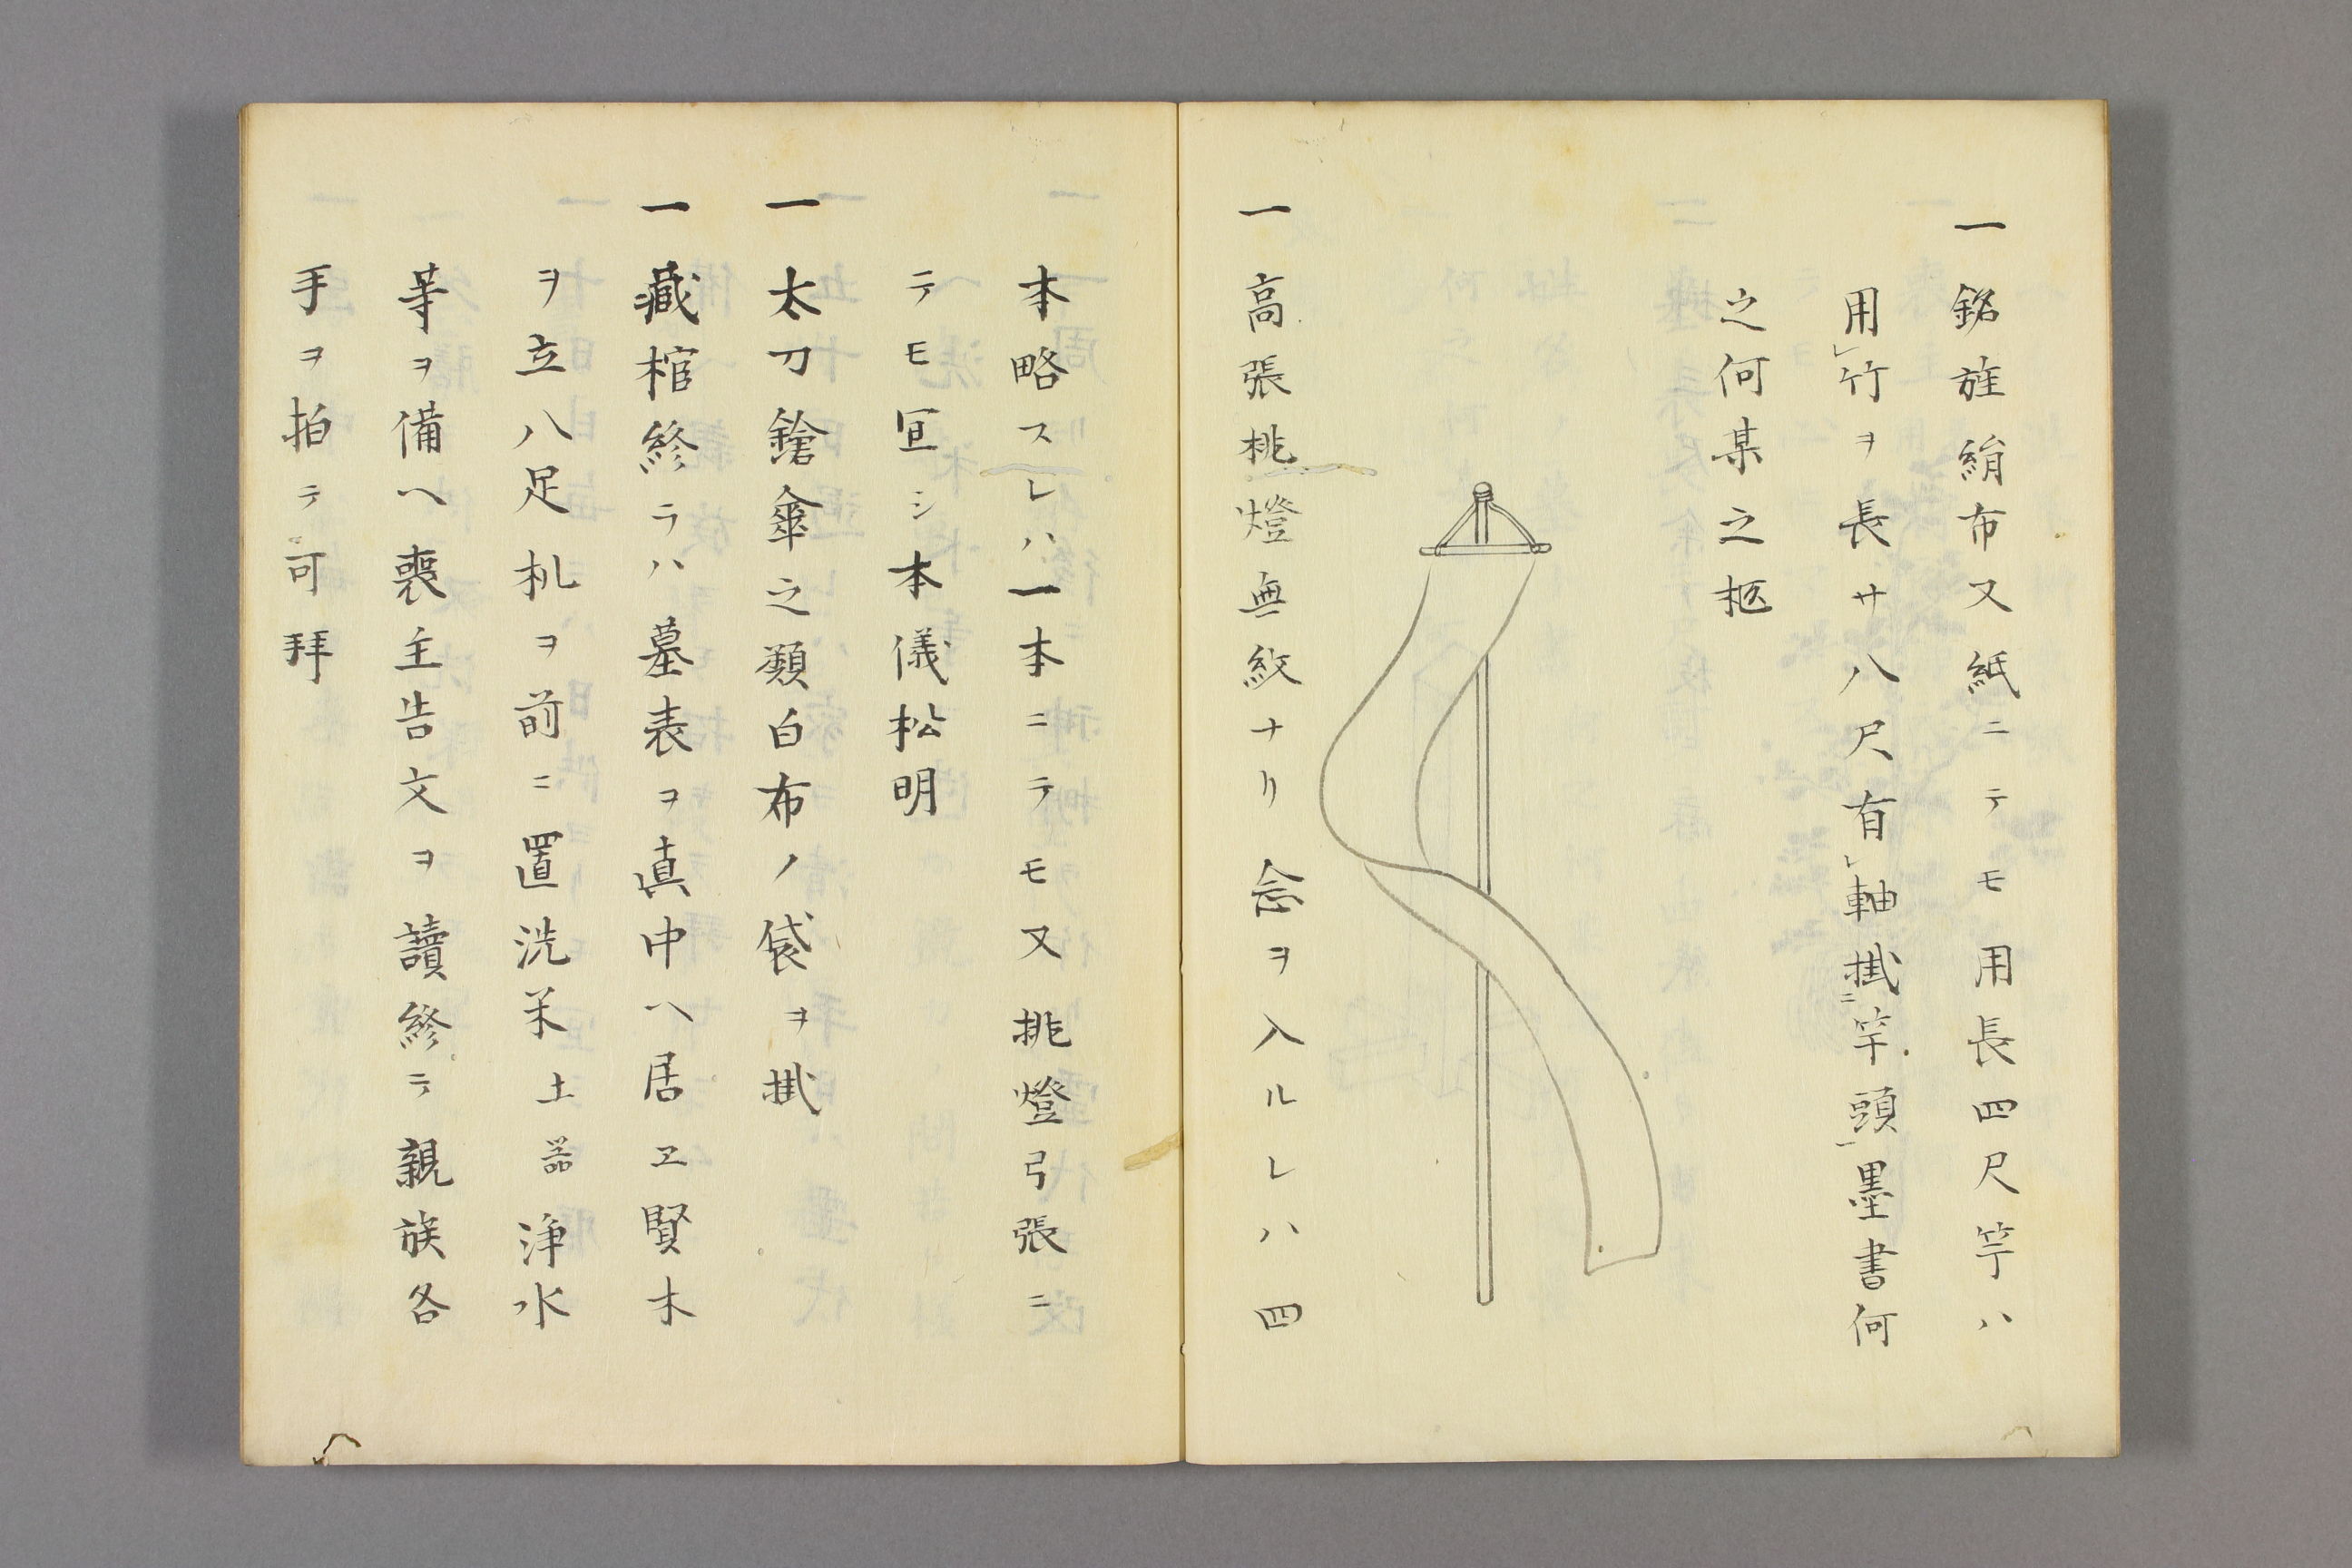 一銘旌絹布又紙ニテモ用長四尺竿ハ
用㆑竹ヲ長サ八尺有㆑軸掛㆓竿頭㆒墨書何
之何某之柩
一高張桃燈無紋ナリ念ヲ入ルレハ四
本略スレハ一本ニテモ又挑燈弓張ニ
テモ宜シ本儀松明
一太刀鎗傘之類白布ノ袋ヲ掛
一藏棺終ラハ墓表ヲ真中ヘ居ヱ賢木
ヲ立八足机ヲ前ニ置洗米土器浄水
等ヲ備ヘ喪主告文ヲ讀終テ親族各
手ヲ拍テ可拜